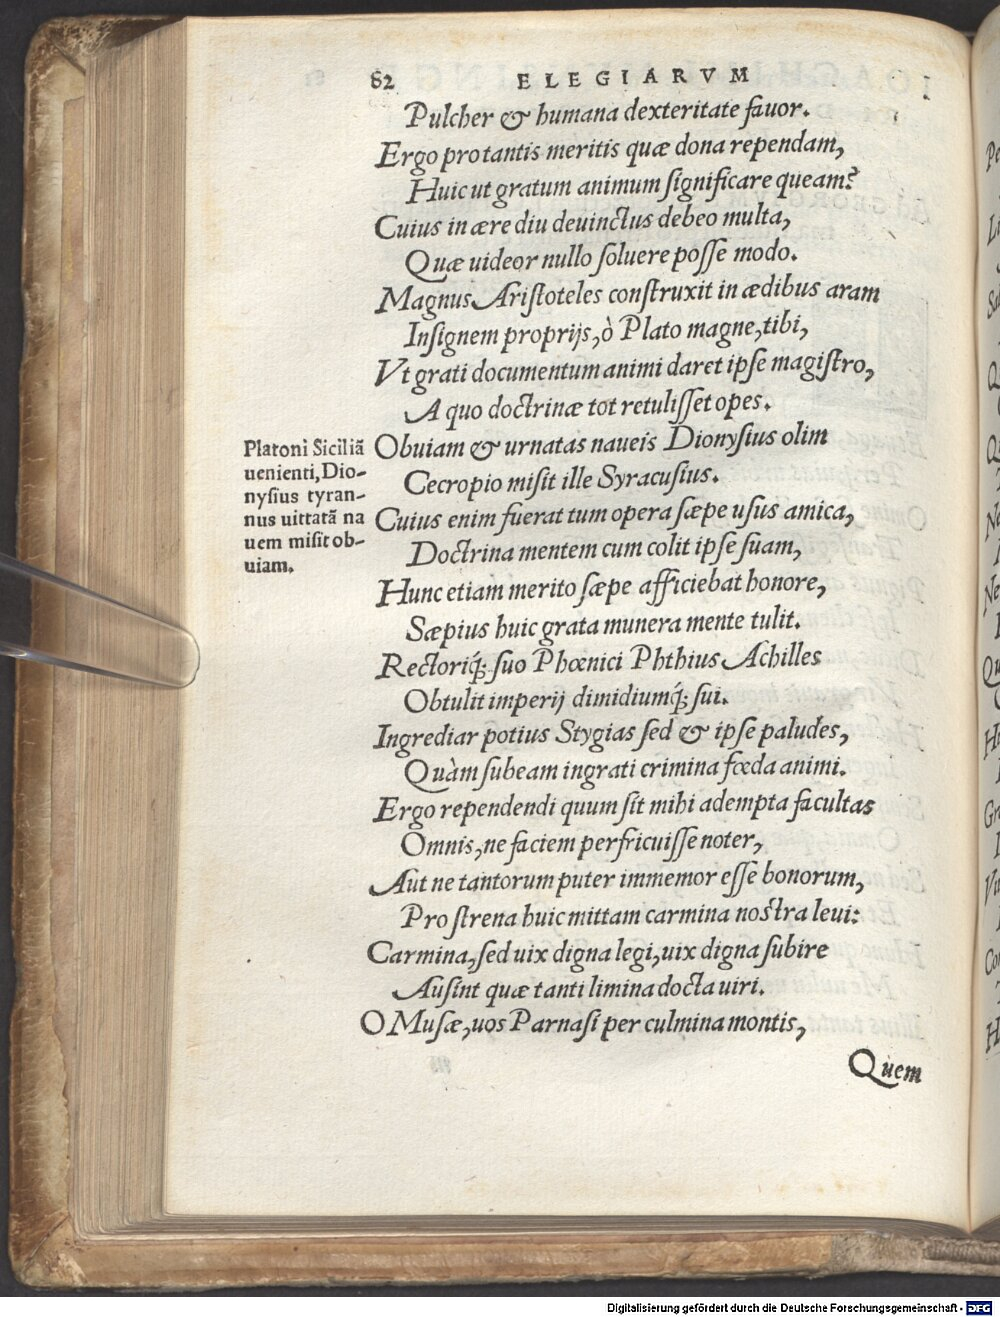 82 ELEGIARVM
Pulcher & humana dexteritate fauor.
Ergo pro tantis meritis quæ dona rependam,
Huic ut gratum animum significare queam?
Cuius in ære diu deuinctus debeo multa,
Quæ uideor nullo soluere posse modo.
Magnus Aristoteles construxit in ædibus aram
Insignem proprijs, ò Plato magne, tibi,
Vt grati documentum animi daret ipse magistro,
A quo doctrinæ tot retulisset opes.
Platoni Siciliã
uenienti, Dio-
nysius tyran-
nus uittatã na
uem misit ob-
uiam.
Obuiam & urnatas naueis Dionysius olim
Cecropio misit ille Syracusius.
Cuius enim fuerat tum opera sæpe usus amica,
Doctrina mentem cum colit ipse suam,
Hunc etiam merito sæpe afficiebat honore,
Sæpius huic grata munera mente tulit.
Rectoriq́; suo Phœnici Phthius Achilles
Obtulit imperij dimidiumq́; sui.
Ingrediar potius Stygias sed & ipse paludes,
Quàm subeam ingrati crimina fœda animi.
Ergo rependendi quum sit mihi adempta facultas
Omnis, ne faciem perfricuisse noter,
Aut ne tantorum puter immemor esse bonorum,
Pro strena huic mittam carmina nostra leui:
Carmina, sed uix digna legi, uix digna subire
Ausint quæ tanti limina docta uiri.
O Musæ, uos Parnasi per culmina montis,
Quem
Digitalisierung gefördert durch die Deutsche Forschungsgemeinschaft - DFG